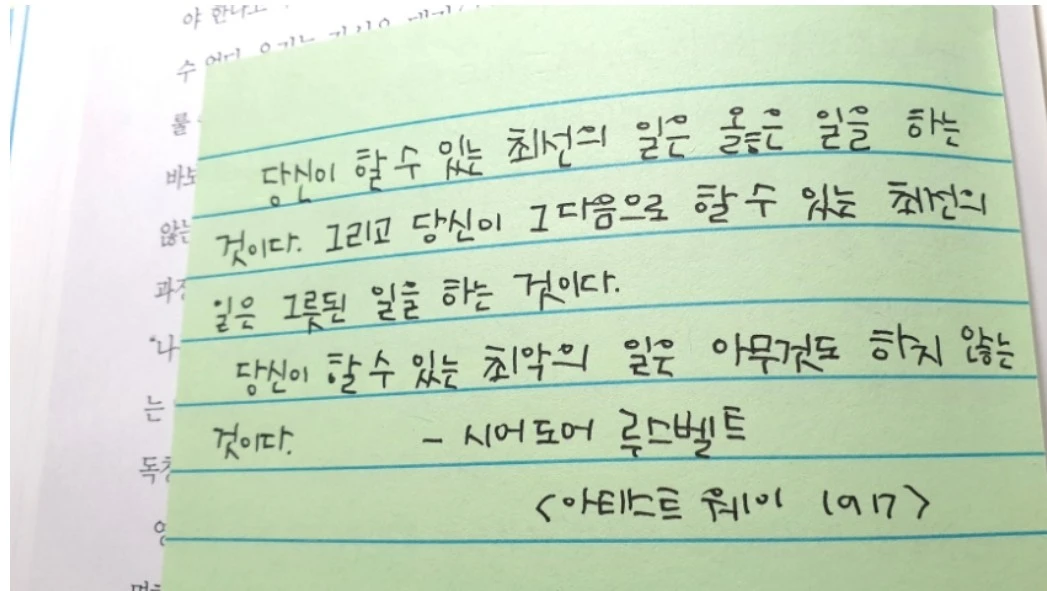 야 한다고
수
를
바보
않는
과정
"나
는
당신이 할 수 있는 최선의 일은 옳은 일을 하는
것이다. 그리고 당신이 그다음으로 할 수 있는 최선의
일은 그릇된 일을 하는 것이다.
당신이 할 수 있는 최악의 일은 아무것도 하지 않는
것이다. - 시어도어 루스벨트
<아티스트 웨이 197>